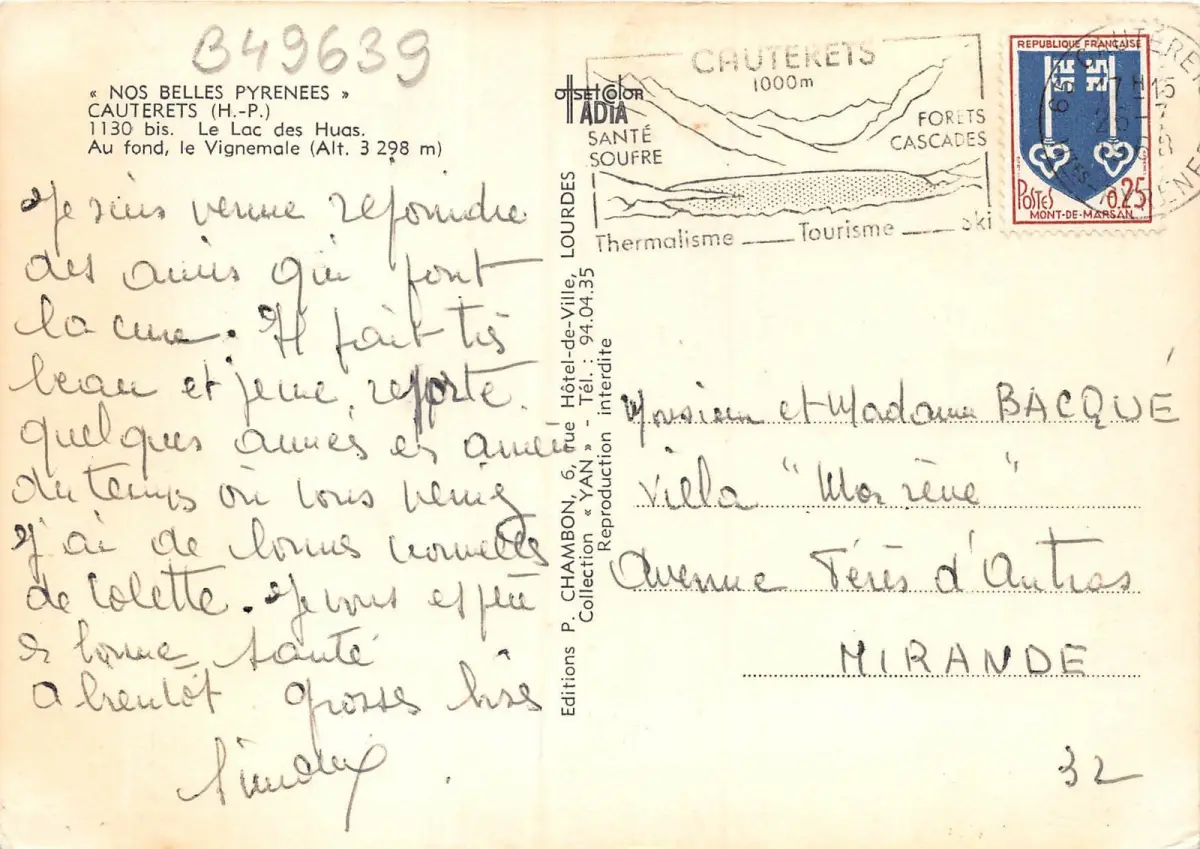 B49639
« NOS BELLES PYRENEES »
CAUTERETS (H.-P.)
1130 bis. Le Lac des Huas.
Au fond, le Vignemale (Alt. 3 298 m)
Je suis venue rejoindre
des amis qui font
la cure. Il fait très
beau et je me reporte
quelques années en arrière
du temps où vous veniez
J'ai de bonnes nouvelles
de Colette. Je vous espère
en bonne santé
A bientôt grosses bises
offsetcolor
ADIA
Editions P. CHAMBON, 6, rue Hôtel-de-Ville, LOURDES
Collection « YAN » - Tél. : 94.04.35
Reproduction interdite
CAUTERETS
1000m
SANTÉ
SOUFRE
FORETS
CASCADES
Thermalisme Tourisme Ski
REPUBLIQUE FRANÇAISE
POSTES 0,25
MONT-DE-MARSAN
65 CAUTERETS
17 H 15
26-7
PYRENEES
Monsieur et Madame BACQUÉ
Villa
Avenue d'Antras
MIRANDE
32